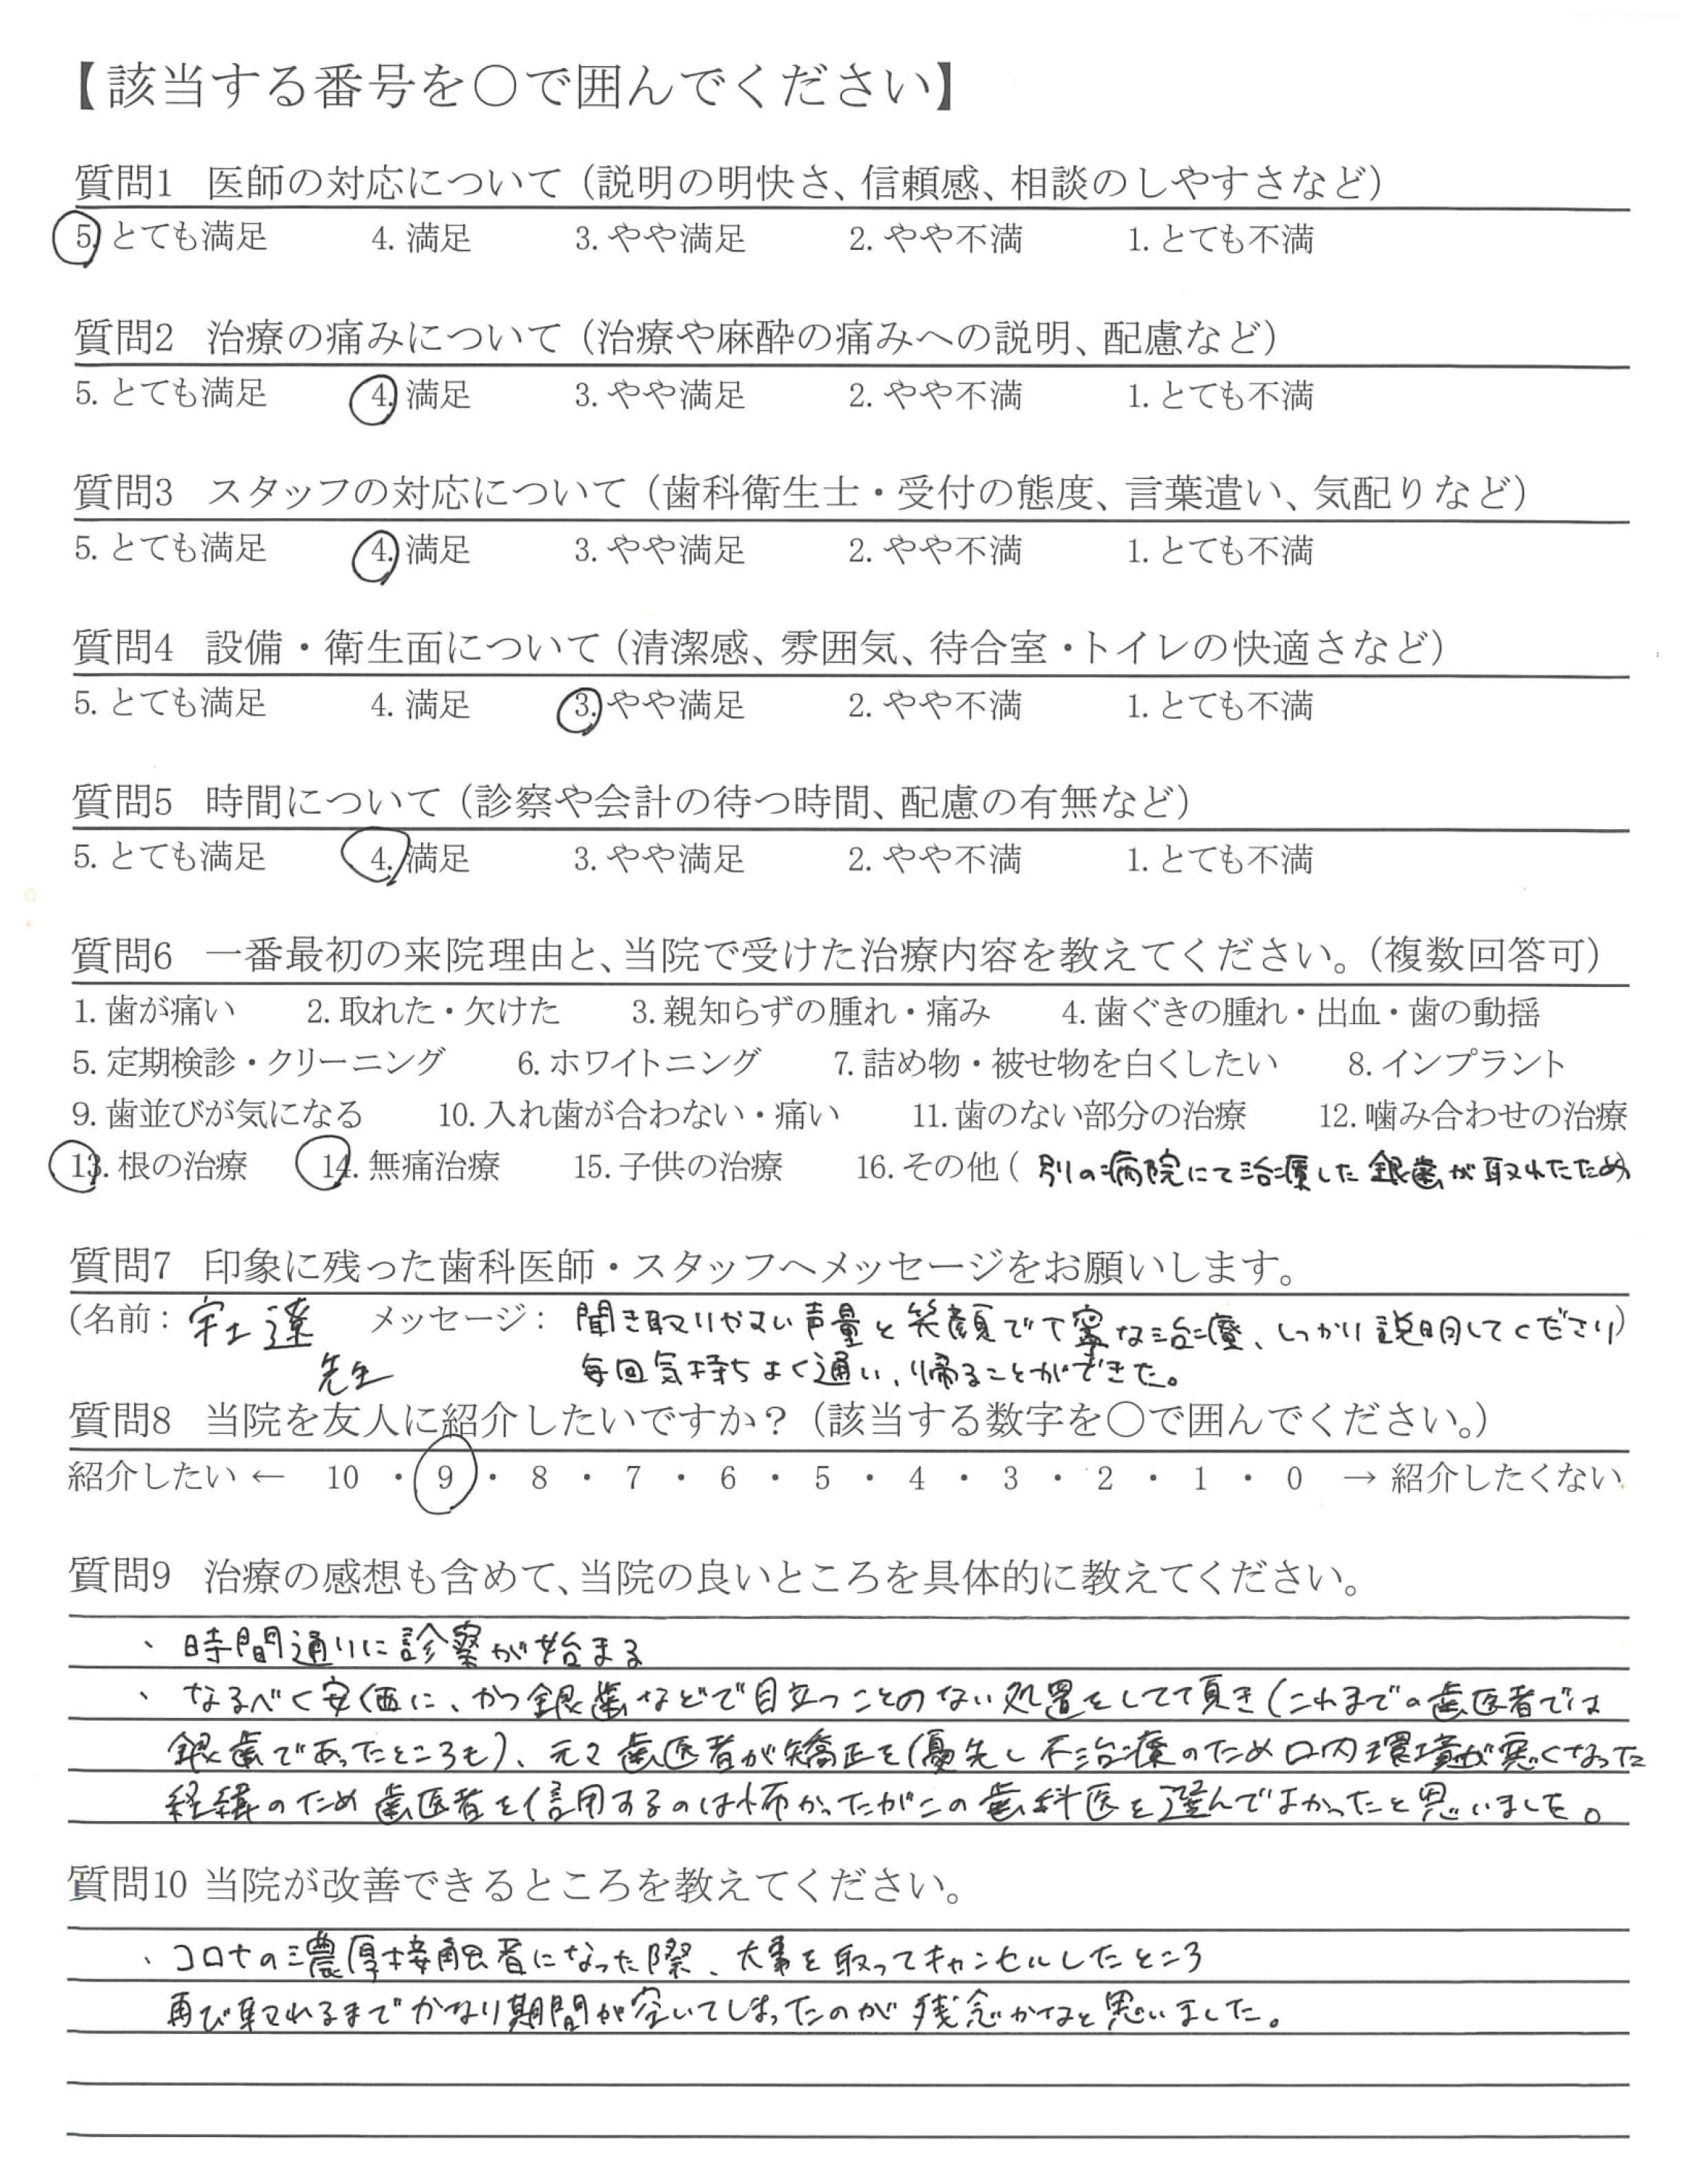 【該当する番号を○で囲んでください】
質問1 医師の対応について（説明の明快さ、信頼感、相談のしやすさなど）
5. とても満足 4. 満足 3. やや満足 2. やや不満 1. とても不満
質問2 治療の痛みについて（治療や麻酔の痛みへの説明、配慮など）
5. とても満足 4. 満足 3. やや満足 2. やや不満 1. とても不満
質問3 スタッフの対応について（歯科衛生士・受付の態度、言葉遣い、気配りなど）
5. とても満足 4. 満足 3. やや満足 2. やや不満 1. とても不満
質問4 設備・衛生面について（清潔感、雰囲気、待合室・トイレの快適さなど）
5. とても満足 4. 満足 3. やや満足 2. やや不満 1. とても不満
質問5 時間について（診察や会計の待つ時間、配慮の有無など）
5. とても満足 4. 満足 3. やや満足 2. やや不満 1. とても不満
質問6 一番最初の来院理由と、当院で受けた治療内容を教えてください。（複数回答可）
1. 歯が痛い 2. 取れた・欠けた 3. 親知らずの腫れ・痛み 4. 歯ぐきの腫れ・出血・歯の動揺
5. 定期検診・クリーニング 6. ホワイトニング 7. 詰め物・被せ物を白くしたい 8. インプラント
9. 歯並びが気になる 10. 入れ歯が合わない・痛い 11. 歯のない部分の治療 12. 噛み合わせの治療
13. 根の治療 14. 無痛治療 15. 子供の治療 16. その他（別の病院にて治療した銀歯が取れたため）
質問7 印象に残った歯科医師・スタッフへメッセージをお願いします。
（名前：宇土 遼 メッセージ：聞き取りやすい声量と笑顔で丁寧な治療、しっかり説明してくださり）
先生 毎回気持ちよく通い、帰ることができた。
質問8 当院を友人に紹介したいですか？（該当する数字を○で囲んでください。）
紹介したい ← 10 ・ 9 ・ 8 ・ 7 ・ 6 ・ 5 ・ 4 ・ 3 ・ 2 ・ 1 ・ 0 → 紹介したくない
質問9 治療の感想も含めて、当院の良いところを具体的に教えてください。
、時間通りに診察が始まる
、なるべく安価に、かつ銀歯などで目立つことのない処置をして頂き（これまでの歯医者では
銀歯であったところも）、元々歯医者が矯正を優先し不治療のため口内環境が悪くなった
経緯のため歯医者を信用するのは怖かったがこの歯科医を選んでよかったと思いました。
質問10 当院が改善できるところを教えてください。
、コロナの濃厚接触者になった際、大事を取ってキャンセルしたところ
再び取れるまでかなり期間が空いてしまったのが残念かなと思いました。